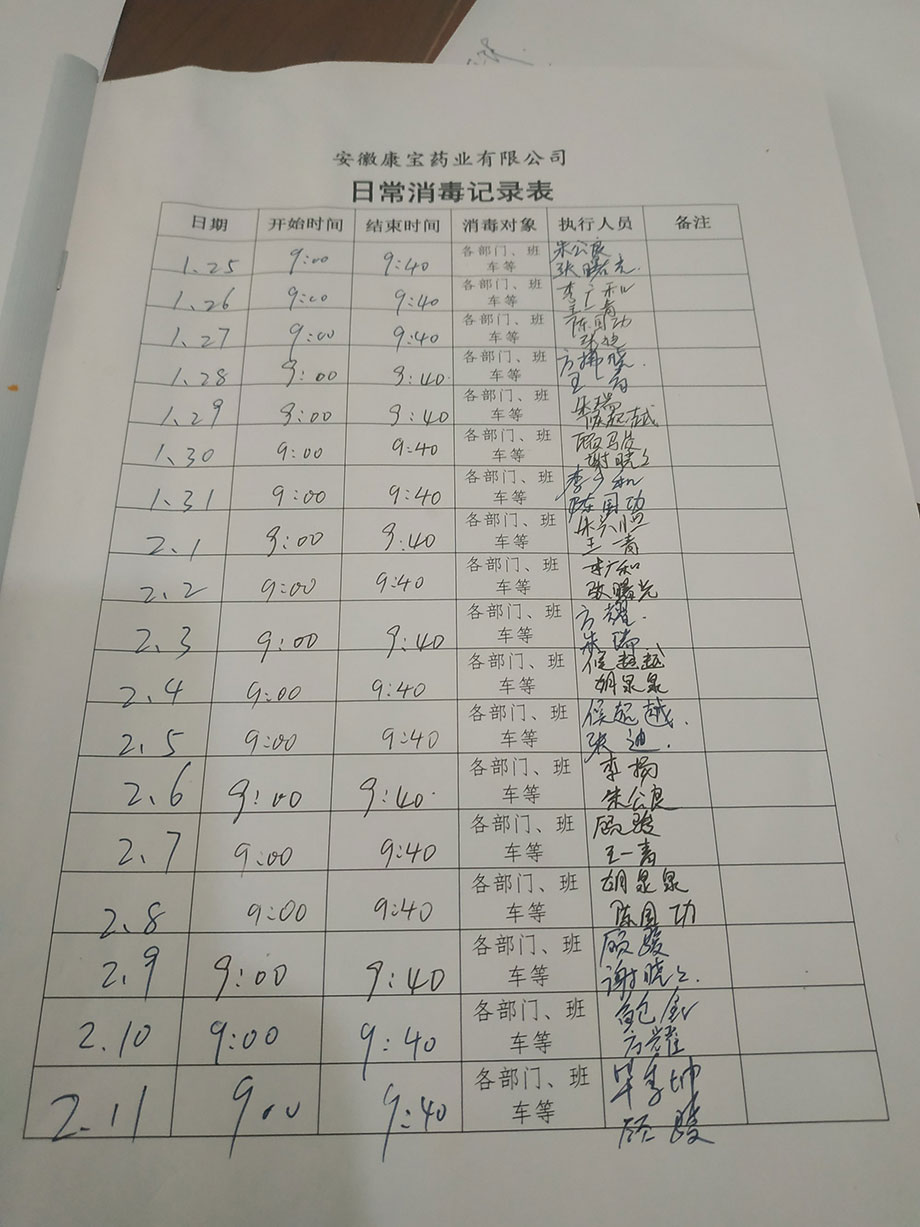 安徽康宝药业有限公司
日常消毒记录表
日期 开始时间 结束时间 消毒对象 执行人员 备注
1.25 9:00 9:40 各部门、班 朱公良
车等 张曙光.
1.26 9:00 9:40 各部门、班 李广和
车等 王一青
1.27 9:00 9:40 各部门、班 陈国功
车等 张迪
1.28 9:00 9:40. 各部门、班 方拂晓.
车等 王一青
1.29 9:00 9:40 各部门、班 朱瑞
车等 侯起越
1.30 9:00 9:40 各部门、班
车等 谢晓
1.31 9:00 9:40 各部门、班 李广和
车等 陈国功
2.1 9:00 9:40 各部门、班 朱
车等 王一青
2.2 9:00 9:40 各部门、班 李广和
车等 张曙光
2.3 9:00 9:40 各部门、班 方耀.
车等 朱瑞.
2.4 9:00 9:40 各部门、班 侯起越
车等 胡泉泉
2.5 9:00 9:40 各部门、班 侯起越.
车等 张迪.
2.6 9:00 9:40. 各部门、班 李扬
车等 朱公良
2.7 9:00 9:40 各部门、班 顾骏
车等 王一青
2.8 9:00 9:40 各部门、班 胡泉泉
车等 陈国功
2.9 9:00 9:40 各部门、班 顾骏
车等 谢晓
2.10 9:00 9:40 各部门、班 鲍
车等 方耀
2.11 9:00 9:40 各部门、班
车等 顾骏